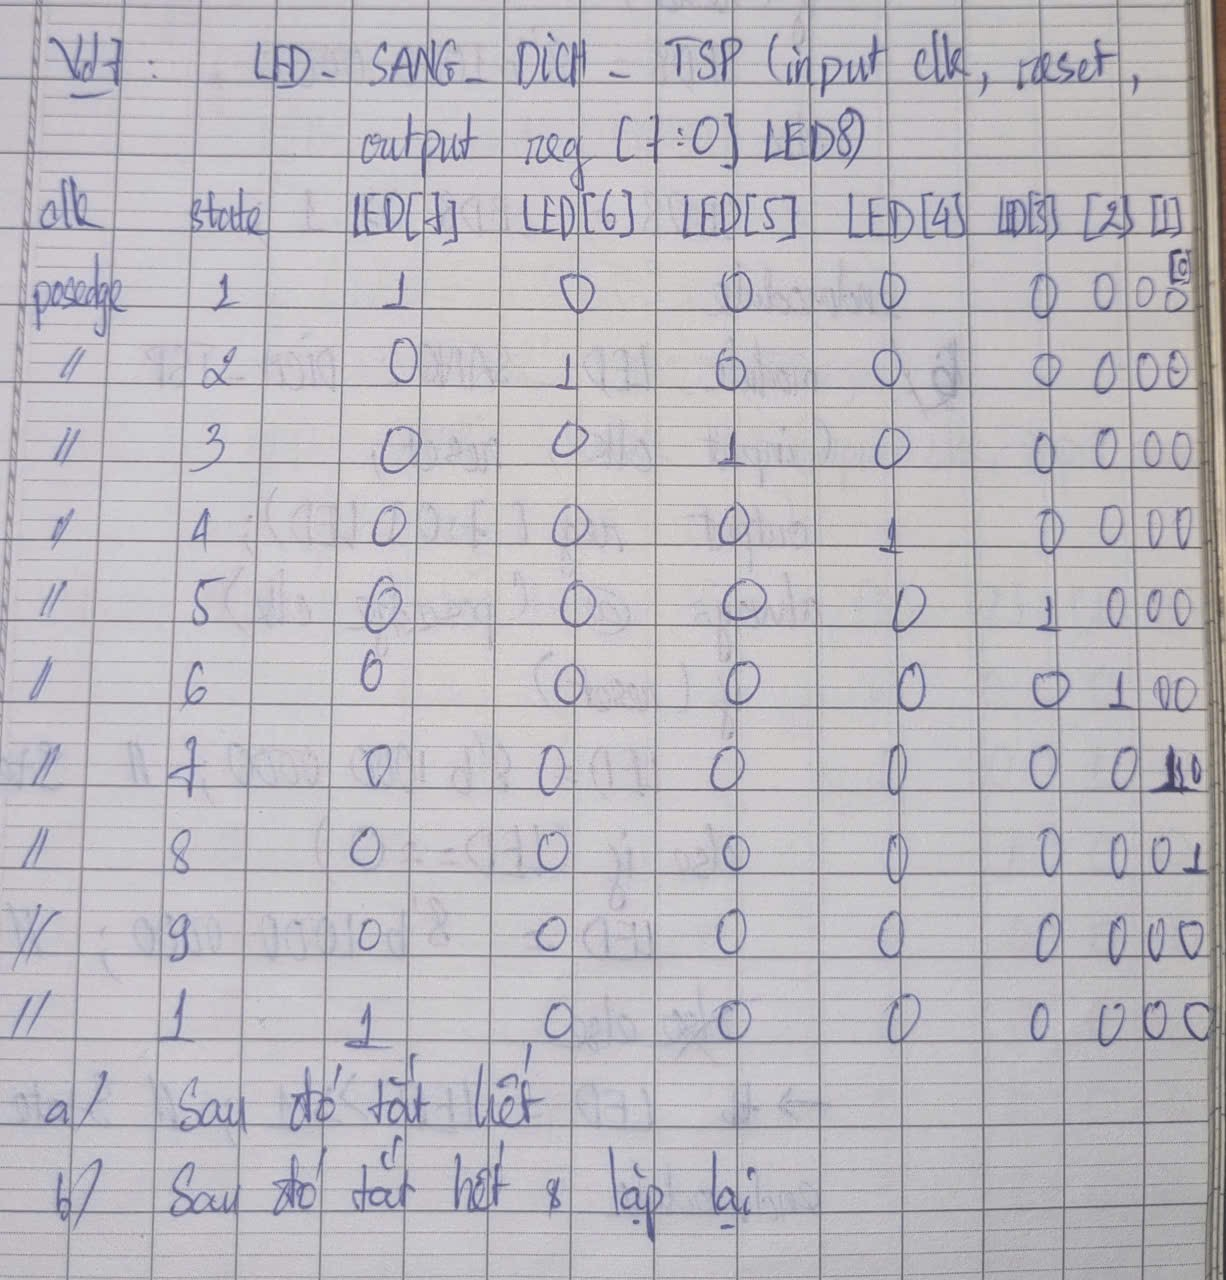 Vd7: LED_SANG_DICH_TSP (input clk, reset,
output reg [7:0] LED8)
clk state LED[7] LED[6] LED[5] LED[4] LED[3] [2] [1] [0]
posedge 1 1 0 0 0 0 0 0 0
" 2 0 1 0 0 0 0 0 0
" 3 0 0 1 0 0 0 0 0
" 4 0 0 0 1 0 0 0 0
" 5 0 0 0 0 1 0 0 0
" 6 0 0 0 0 0 1 0 0
" 7 0 0 0 0 0 0 1 0
" 8 0 0 0 0 0 0 0 1
" 9 0 0 0 0 0 0 0 0
" 1 1 0 0 0 0 0 0 0
a/ Sau đó tắt hết
b/ Sau đó tắt hết & lặp lại